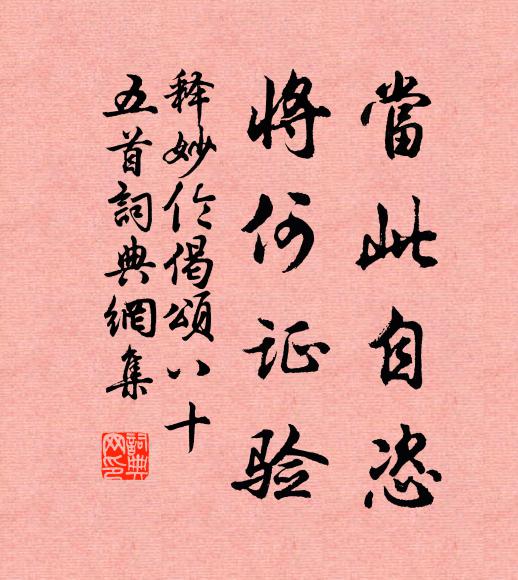 當此自恣
將何证验
释妙伦偈颂八十
五首詞典網集
詞典
网印